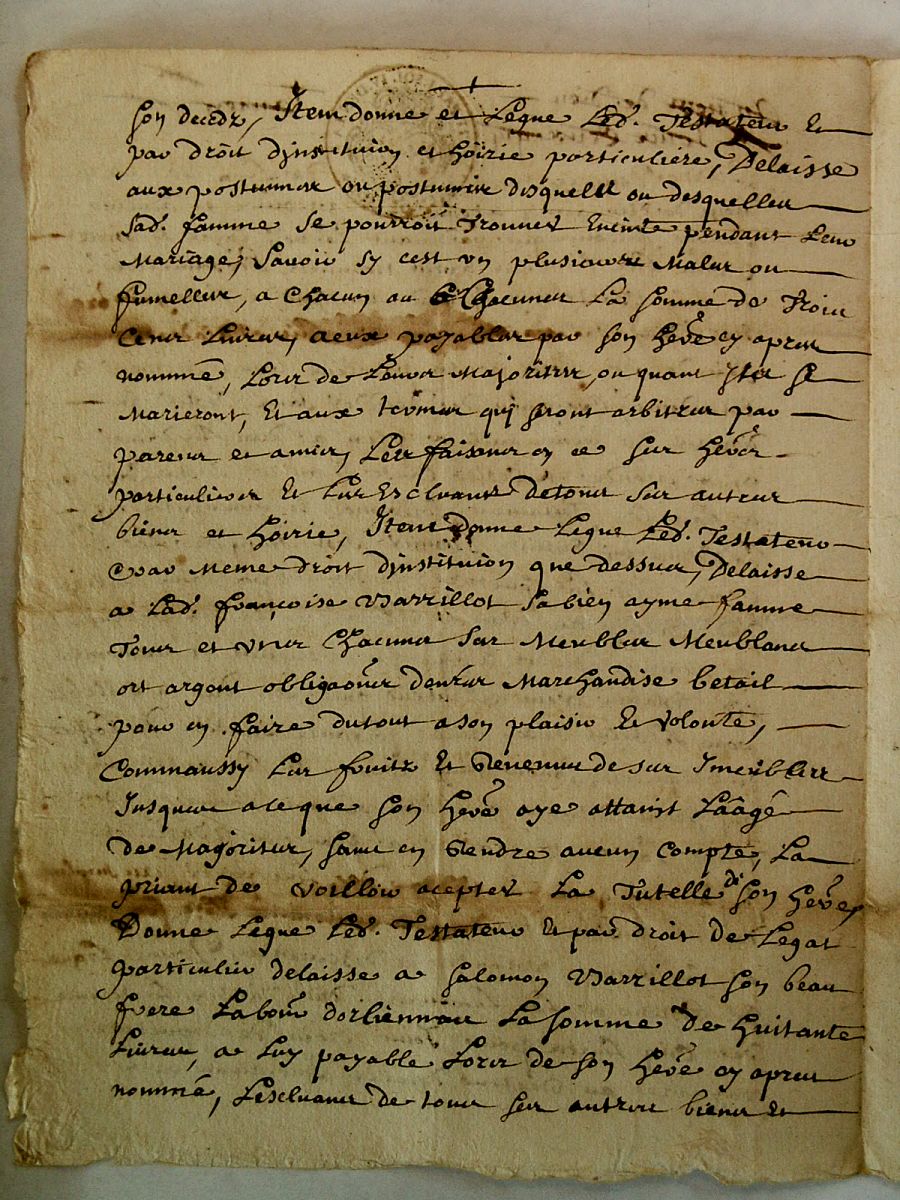 son decedz, Item donne et Legue Led. Testateur Et
par droit djnstitution et hoirie particuliére, Delaisse
aux postumes ou postumes desquelz ou desquelles
sad. famme se pourroit Trouver Enceinte pendant Leur
Mariage, Savoir sy cest un plusieurs Malles ou
fumelles, a Chacun ou Chacunes La somme de Trois
Cens Livres, a eux payables par son here cy apres
nommé, Lors de Leurs Majorittes, ou quant Ils se
Marieront, Et aux termes quj seront arbitres par
parens et amis, Les faisans en ce ses heres
particuliers Et Les Excluant de tous ses autres
biens et hoirie, Item donne Legue Led. Testateur
Et par Meme droit djnstitution que dessus, Delaisse
a Lad. françoise Varrillot sa bien ayme famme
Tous et uns Chacuns ses Meubles Meublans
ort argent obligaons denrées Marchandise betail
pour en faire du tout a son plaisir Et volonte,
Comm aussy Les fruitz Et Revenus de ses Imeubles
Jusques a ce que son here aye attaint Lââgé
de Majorites, sans en Rendre aucun compte, La
priant de voilloir acepter La Tutelle de son here,
Donne Legue Led. Testateur Et par droit de Legat
particulier delaisse a Salomon Varrillot son beau
frere Labour dorliennas La somme de huitante
Livres, a Luy payable Lors de son here cy apres
nommé, Lexcluant de tous ses autres biens Et